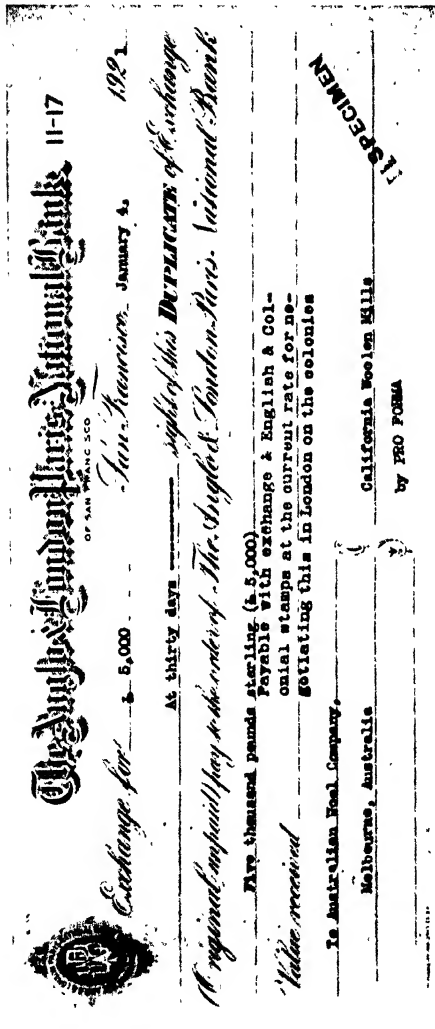 The Anglo & London Paris National Bank 11-17
OF SAN FRANC SCO
Exchange for £ 5,000 San Francisco, January 4, 1922
At thirty days sight of this DUPLICATE of Exchange
(Original unpaid) pay to the order of The Anglo & London Paris National Bank
Five thousand pounds sterling (£5,000)
Payable with exchange & English & Col-
onial stamps at the current rate for ne-
Value received gotiating this in London on the colonies
To Australian Wool Company, California Woolen Mills
Melbourne, Australia by PRO FORMA
SPECIMEN